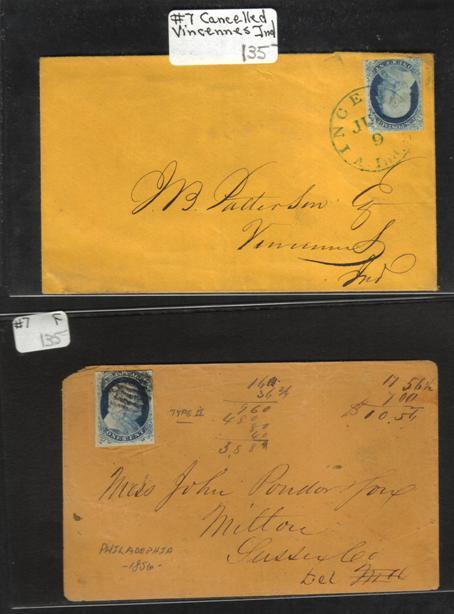 #7 Cancelled
Vincennes Ind
135
VINCE
JU
9
Ind.
J.B. Patterson Esq
Vincennes
Ind
#7 F
135
ONE CENT
TYPE II
160
36 3/4
960
480
80
40
5,88
11 56 1/2
1 00
$ 10.56
Mess John Ponder & Son
Milton
Sussex Co
Del
PHILADEPHIA
-1856-